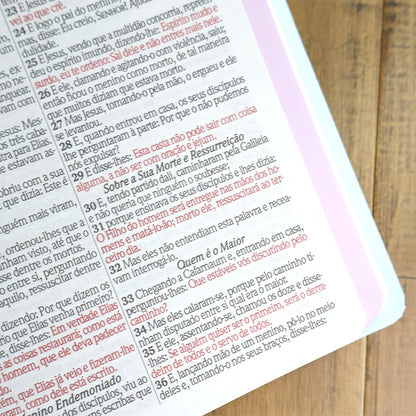 Jesus. Mes-
os três caba-
ara para Elias.
e estavam as-
obriu com a sua
dizia: Este é
inguém mais viram,
ordenou-lhes que a
inham visto, até que o
entre os mortos.
entre si, perguntando
aquilo, ressuscitar dentre
dizendo: Por que dizem os
e Elias venha primeiro?
disse-lhes: Em verdade Elias
as coisas restaurará; como está
homem, que ele deva padecer
que Elias já veio e fizeram-lhe
am, como dele está escrito.
Menino Endemoniado
dos discípulos, viu ao
escribas que
vei ao que crê.
24 E logo o pai do menino,
mas, disse: Eu creio, SENHOR! Ajuda a
dulidade.
25 E Jesus, vendo que a multidão concorria, repreen-
deu o espírito imundo, dizendo-lhe: Espírito mudo e
surdo, eu te ordeno: Sai dele e não entres mais nele.
26 E ele, clamando e agitando-o com violência, saiu;
então ficou o menino como morto, de tal maneira
que muitos diziam que estava morto.
27 Mas Jesus, tomando-o pela mão, o ergueu e ele
se levantou.
28 E, quando entrou em casa, os seus discípulos
lhe perguntaram à parte: Por que o não pudemos
nós expulsar?
29 E disse-lhes: Esta casta não pode sair com coisa
alguma, a não ser com oração e jejum.
Sobre a Sua Morte e Ressurreição
30 E, tendo partido dali, caminharam pela Galileia
e não queria que ninguém o soubesse;
31 porque ensinava os seus discípulos e lhes dizia:
O Filho do homem será entregue nas mãos dos ho-
mens e matá-lo-ão; morto ele, ressuscitará ao ter-
ceiro dia.
32 Mas eles não entendiam esta palavra e recea-
vam interrogá-lo.
Quem é o Maior
33 Chegando a Cafarnaum e, entrando em casa,
perguntou-lhes: Que estáveis vós discutindo pelo
caminho?
34 Mas eles calaram-se, porque pelo caminho ti-
nham disputado entre si qual era o maior.
35 E ele, assentando-se, chamou os doze e disse-
lhes: Se alguém quiser ser o primeiro, será o derra-
deiro de todos e o servo de todos.
36 E, lançando mão de um menino, pô-lo no meio
deles e, tomando-o nos seus braços, disse-lhes: